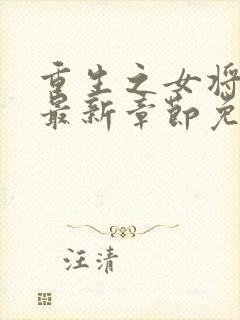 重生之女将
最新章节免
汪清